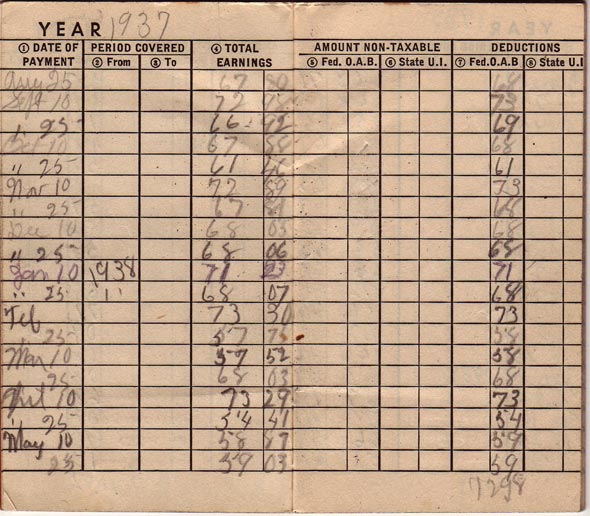 YEAR 1937
① DATE OF PAYMENT PERIOD COVERED ② From ③ To ④ TOTAL EARNINGS AMOUNT NON-TAXABLE ⑤ Fed. O.A.B. ⑥ State U.I. DEDUCTIONS ⑦ Fed.O.A.B ⑧ State U.I
Aug 25 67 68
Sept 10 72 98 73
" 25 66 92 69
Oct 10 67 68
" 25 61 46 61
Nov 10 72 89 73
" 25 67 68
Dec 10 68 03 68
" 25 68 06 68
Jan 10 1938 71 23 71
" 25 " 68 07 68
Feb 73 30 73
25 57 58
Mar 10 57 52 58
25 68 03 68
Aprl 10 73 29 73
" 25 54 41 54
May 10 58 87 59
25 59 03 59
1298